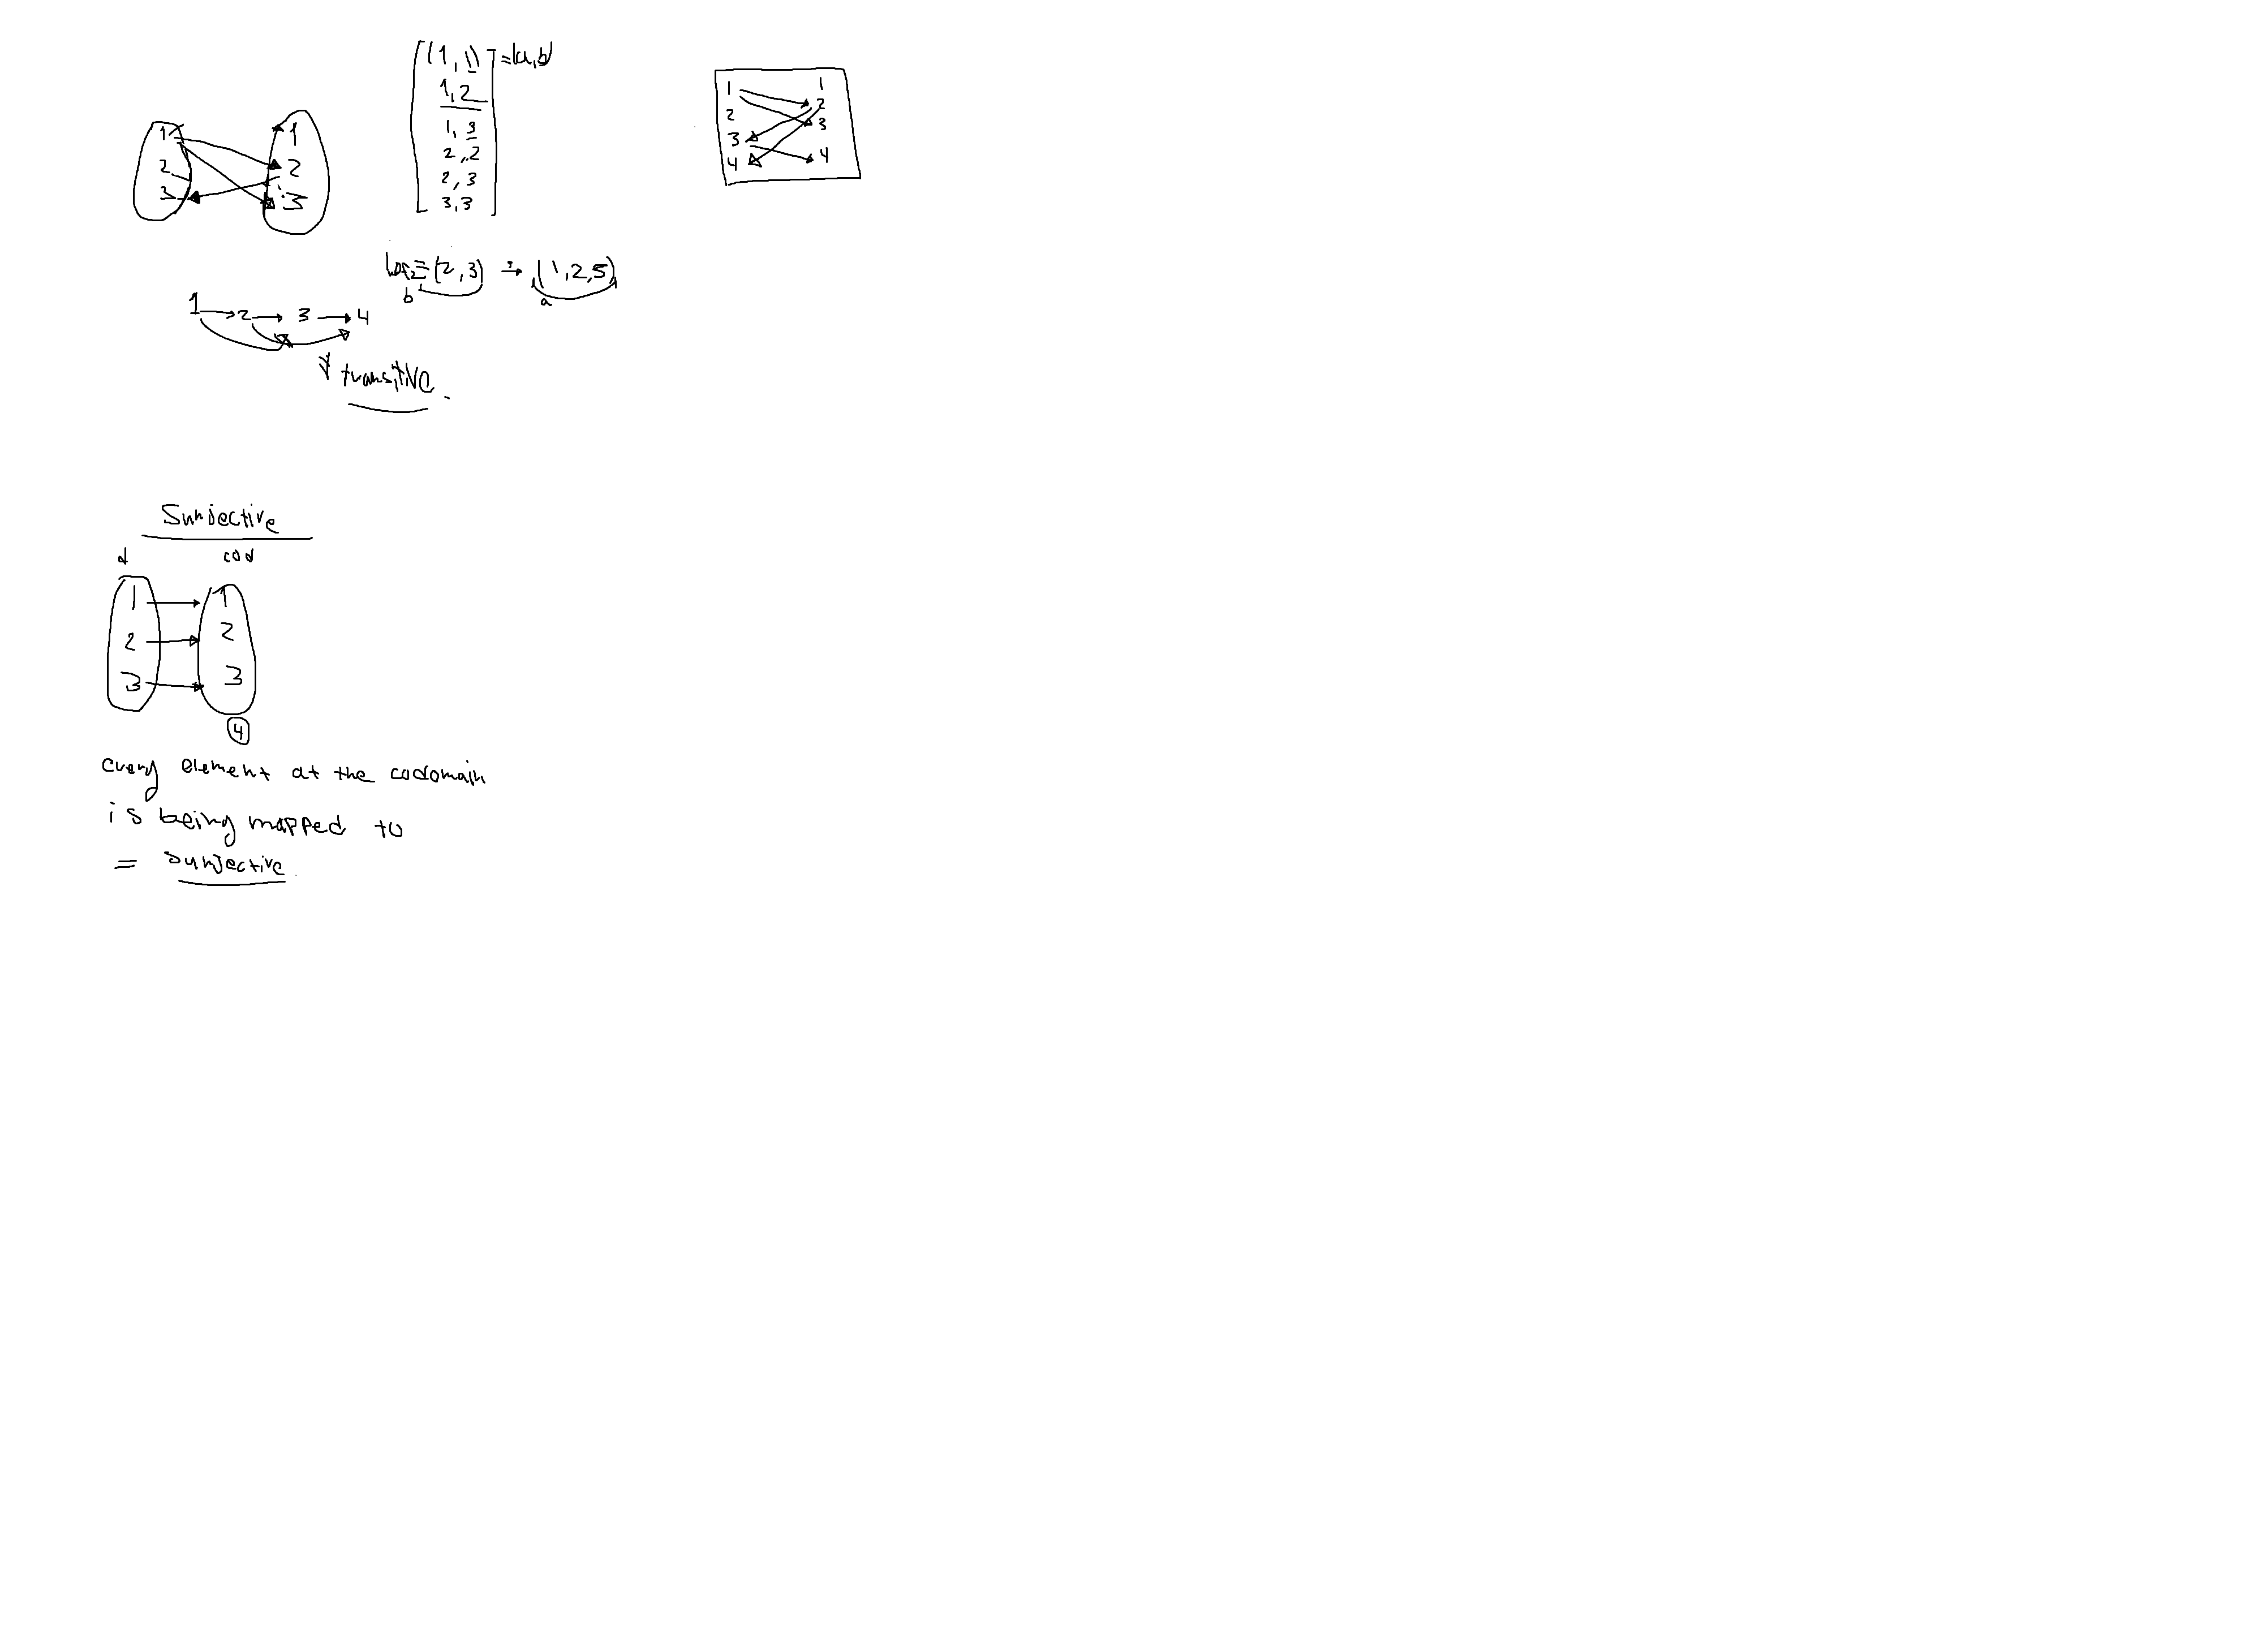 1
2
3
1
2
3
(1,1) =(a,b)
1,2
1,3
2,2
2,3
3,3
1 1
2 2
3 3
4 4
(2,3) → (1,2,5)
b a
1 → 2 → 3 → 4
transitive
Surjective
d cod
1 1
2 2
3 3
4
every element at the codomain
is being mapped to
= surjective